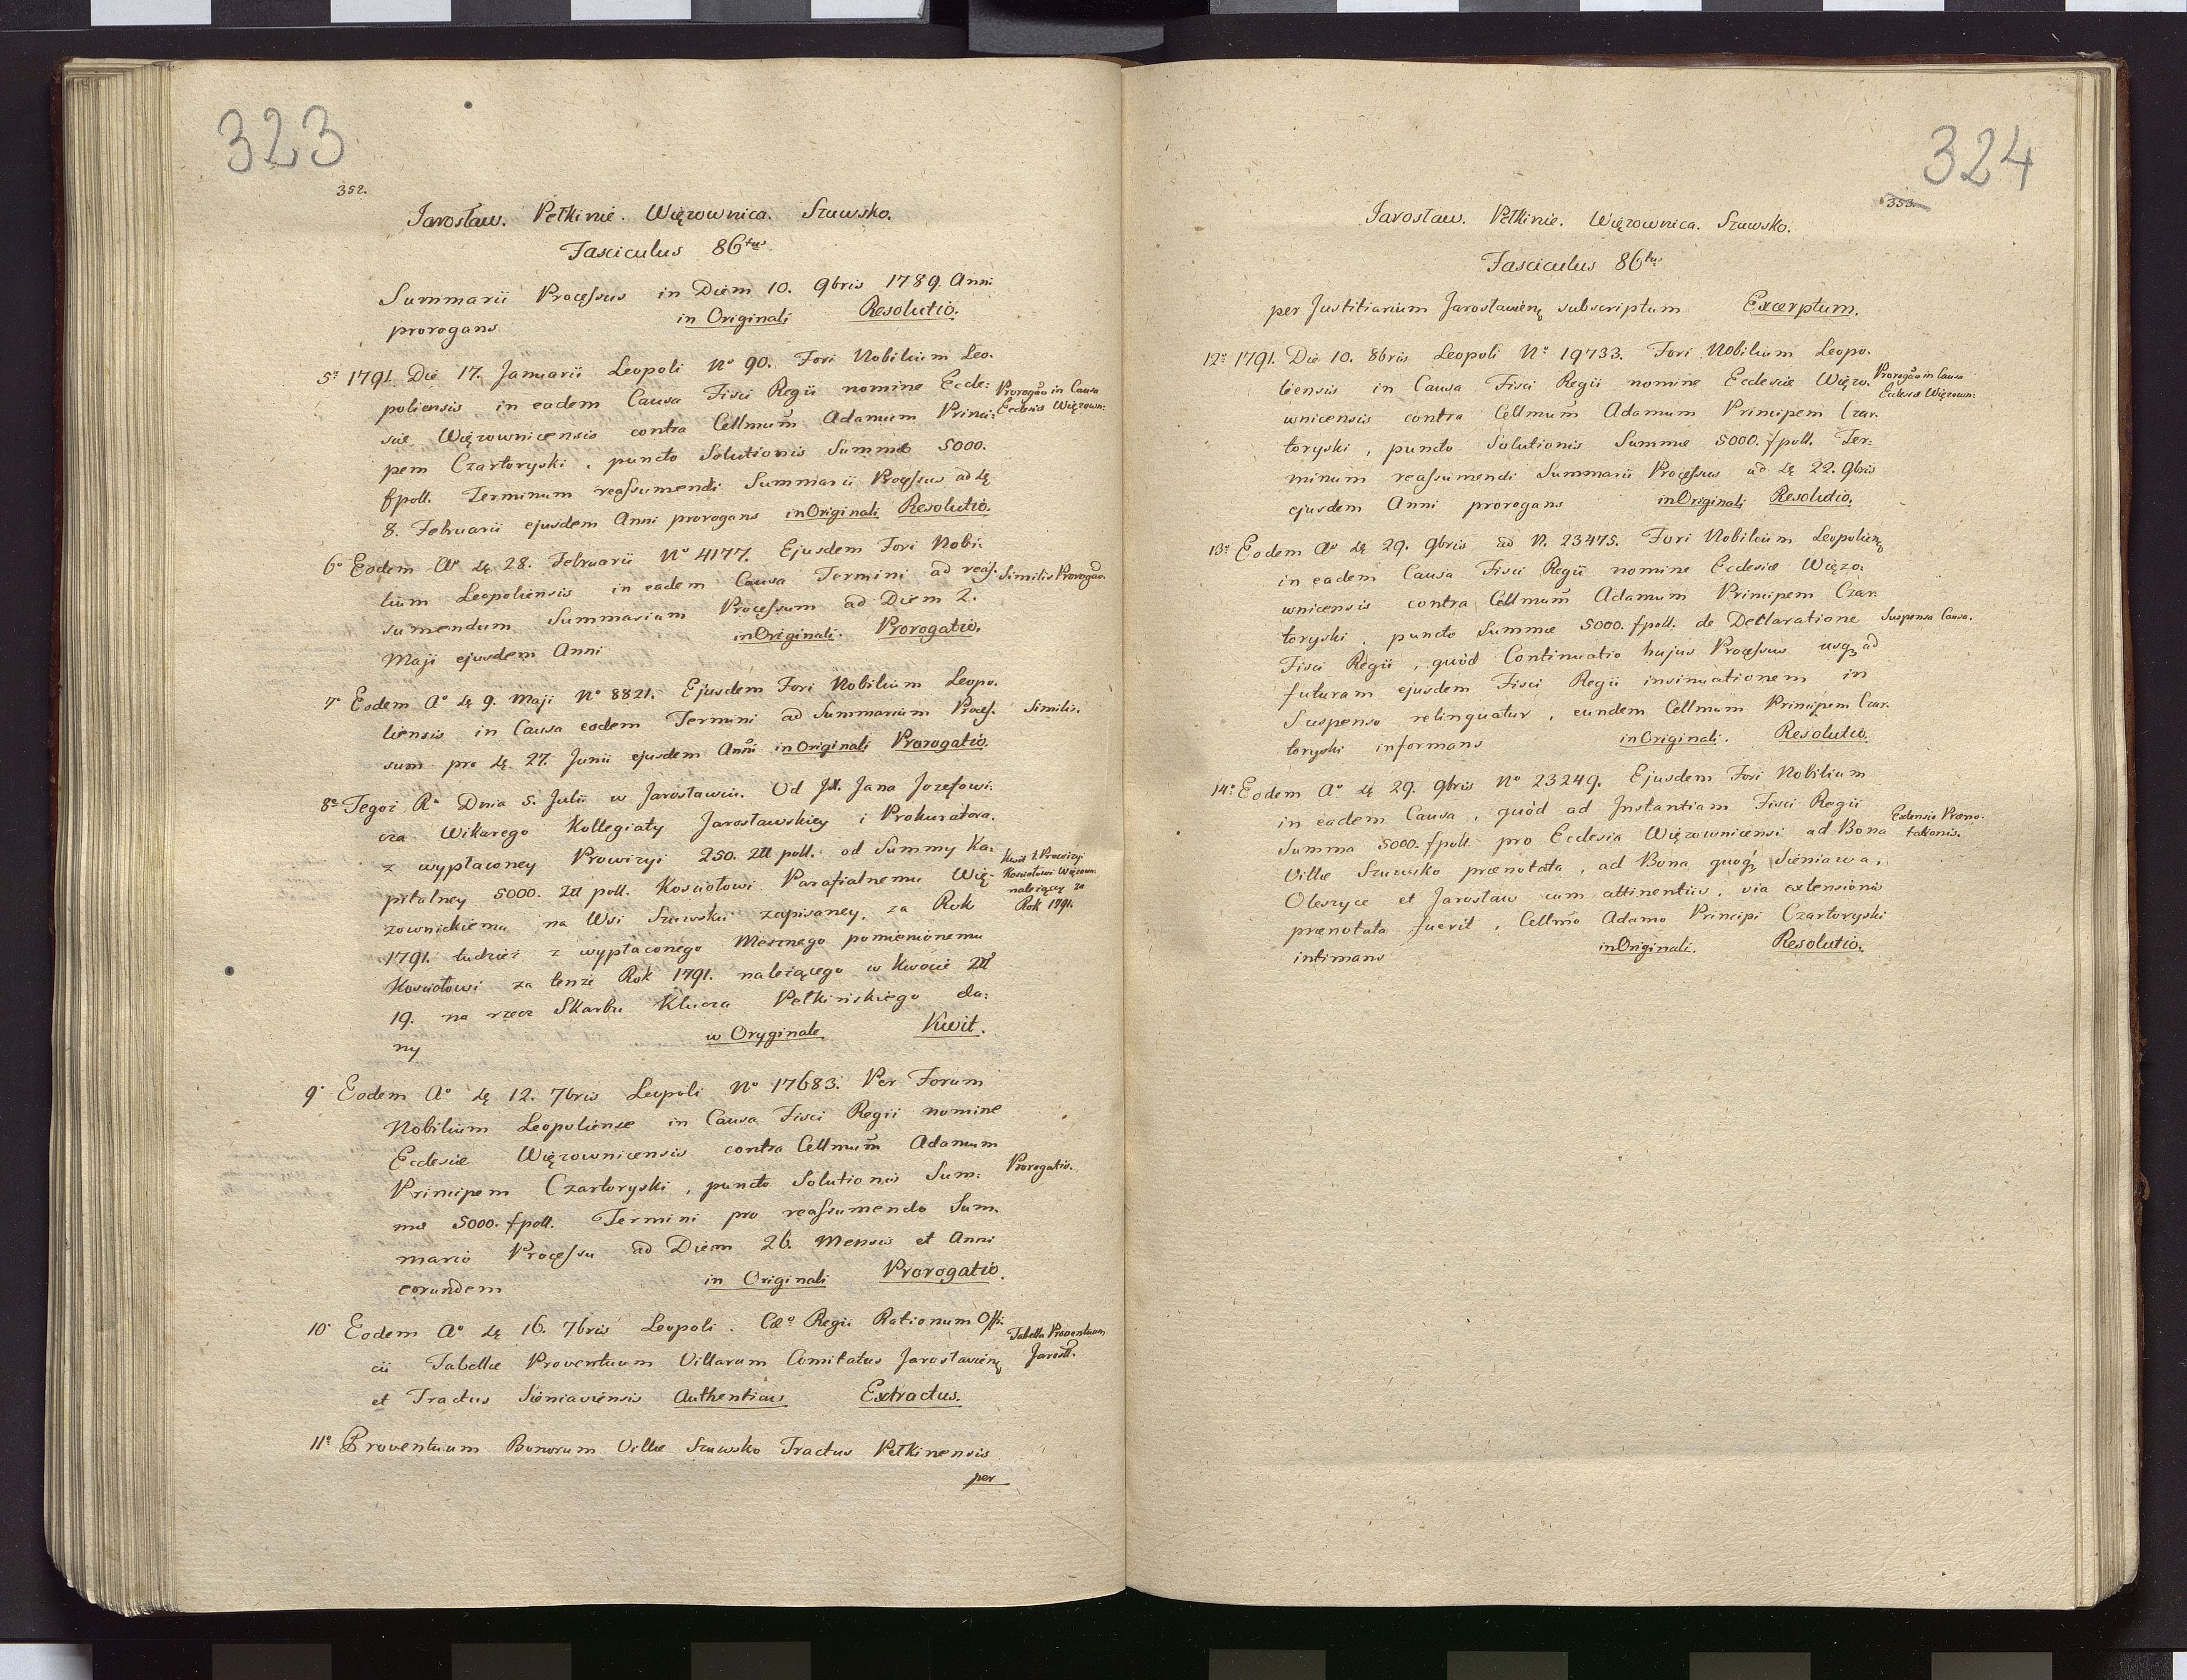 323
352.
Jarosław. Pełkinie. Więzownica. Szuwsko.
Fasciculus 86tus
Summarii Processus in Diem 10. 9bris 1789. Anni
prorogans in Originali Resolutio.
5º 1791. Die 17. Januarii Leopoli Nº 90. Fori Nobilium Leo-
poliensis in eadem Causa Fisci Regii nomine Eccle:
siæ Więzownicensis contra Cellmum Adamum Princi:
pem Czartoryski, puncto Solutionis Summæ 5000.
fpoll. Terminum reassumendi Summarii Processus ad dę
8. Februarii ejusdem Anni prorogans in Originali Resolutio.
Prorogão in Causa
Ecclesiæ Więzown:
6º Eodem Aº dę 28. Februarii Nº 4177. Ejusdem Fori Nobi-
lium Leopoliensis in eadem Causa Termini ad reas-
sumendum Summarium Processum ad Diem 2.
Maji ejusdem Anni in Originali. Prorogatio.
Similis Prorogão.
7º Eodem Aº dę 9. Maji Nº 8821. Ejusdem Fori Nobilium Leopo-
liensis in Causa eadem Termini ad Summarium Proces-
sum pro dę 27. Junii ejusdem Anni in Originali Prorogatio.
Similis.
8º Tegoż Rº Dnia 5. Julii w Jarosławiu. Od JX. Jana Jozefowi-
cza Wikarego Kollegiaty Jarosławskiey i Prokuratora.
z wypłaconey Prowizyi 250. Zł poll. od Summy Ka-
pitalney 5000. Zł poll. Kosciołowi Parafialnemu Wię-
zownickiemu na Wsi Szuwsku zapisaney, za Rok
1791. tudzież z wypłaconego Mesznego pomienionemu
Kosciołowi za tenże Rok 1791. należącego w Kwocie Zł
19. na rzecz Skarbu Klucza Pełkińskiego da:
ny w Oryginale Kwit.
Kwit z Prowizyi
Kosciołowi Więzown:
należącey za
Rok 1791.
9º Eodem Aº dę 12. 7bris Leopoli Nº 17683. Per Forum
Nobilium Leopoliense in Causa Fisci Regii nomine
Ecclesiæ Więzownicensis contra Cellmum Adamum
Principem Czartoryski, puncto Solutionis Sum-
mæ 5000. fpoll. Termini pro reassumendo Sum-
mario Processu ad Diem 26. Mensis et Anni
eorundem in Originali Prorogatio.
Prorogatio.
10º Eodem Aº dę 16. 7bris Leopoli. Cæº Regii Rationum Offi-
cii Tabellæ Proventuum Villarum Comitatus Jarosławienę
et Tractus Sieniaviensis Authenticus Extractus.
Tabella Proventuum
Jarosłł.
11º Proventuum Bonorum Villæ Szuwsko Tractus Pełkinensis
per
324
353.
Jarosław. Pełkinie. Więzownica. Szuwsko.
Fasciculus 86tus
per Justitiarium Jarosławienę subscriptum Excerptum.
12º 1791. Die 10. 8bris Leopoli Nº 19733. Fori Nobilium Leopo-
liensis in Causa Fisci Regii nomine Ecclesiæ Więzo-
wnicensis contra Cellmum Adamum Principem Czar-
toryski, puncto Solutionis Summæ 5000. fpoll. Ter:
minum reassumendi Summarii Processus ad dę 22. 9bris
ejusdem Anni prorogans in Originali Resolutio.
Prorogão in Causa
Ecclesiæ Więzown:
13º Eodem Aº dę 29. 9bris ad N. 23475. Fori Nobilium Leopolienę
in eadem Causa Fisci Regii nomine Ecclesiæ Więzo-
wnicensis contra Cellmum Adamum Principem Czar-
toryski, puncto Summæ 5000. fpoll. de Declaratione
Fisci Regii, quòd Continuatio hujus Processus usq3 ad
futuram ejusdem Fisci Regii insinuationem in
Suspenso relinquatur, eundem Cellmum Principem Czar-
toryski informans in Originali. Resolutio.
Suspensa Causa.
14º Eodem Aº dę 29. 9bris Nº 23249. Ejusdem Fori Nobilium
in eadem Causa, quòd ad Instantiam Fisci Regii
Summa 5000. fpoll. pro Ecclesia Więzownicensi ad Bona
Villæ Szuwsko prænotata, ad Bona quoq3 Sieniawa,
Oleszyce et Jarosław cum attinentiis, via extensionis
prænotata fuerit, Cellmo Adamo Principi Czartoryski
intimans in Originali. Resolutio.
Extensio Præno-
tationis.